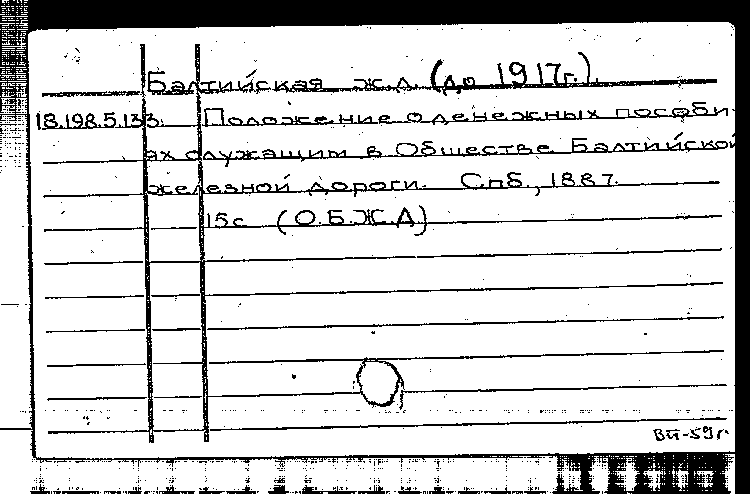 Балтийская ж.д. (до 1917г.).
18.198.5.133. Положение о денежных пособи-
ях служащим в Обществе Балтийской
железной дороги. Спб., 1887.
15с (О.Б.Ж.Д)
ВП-59г